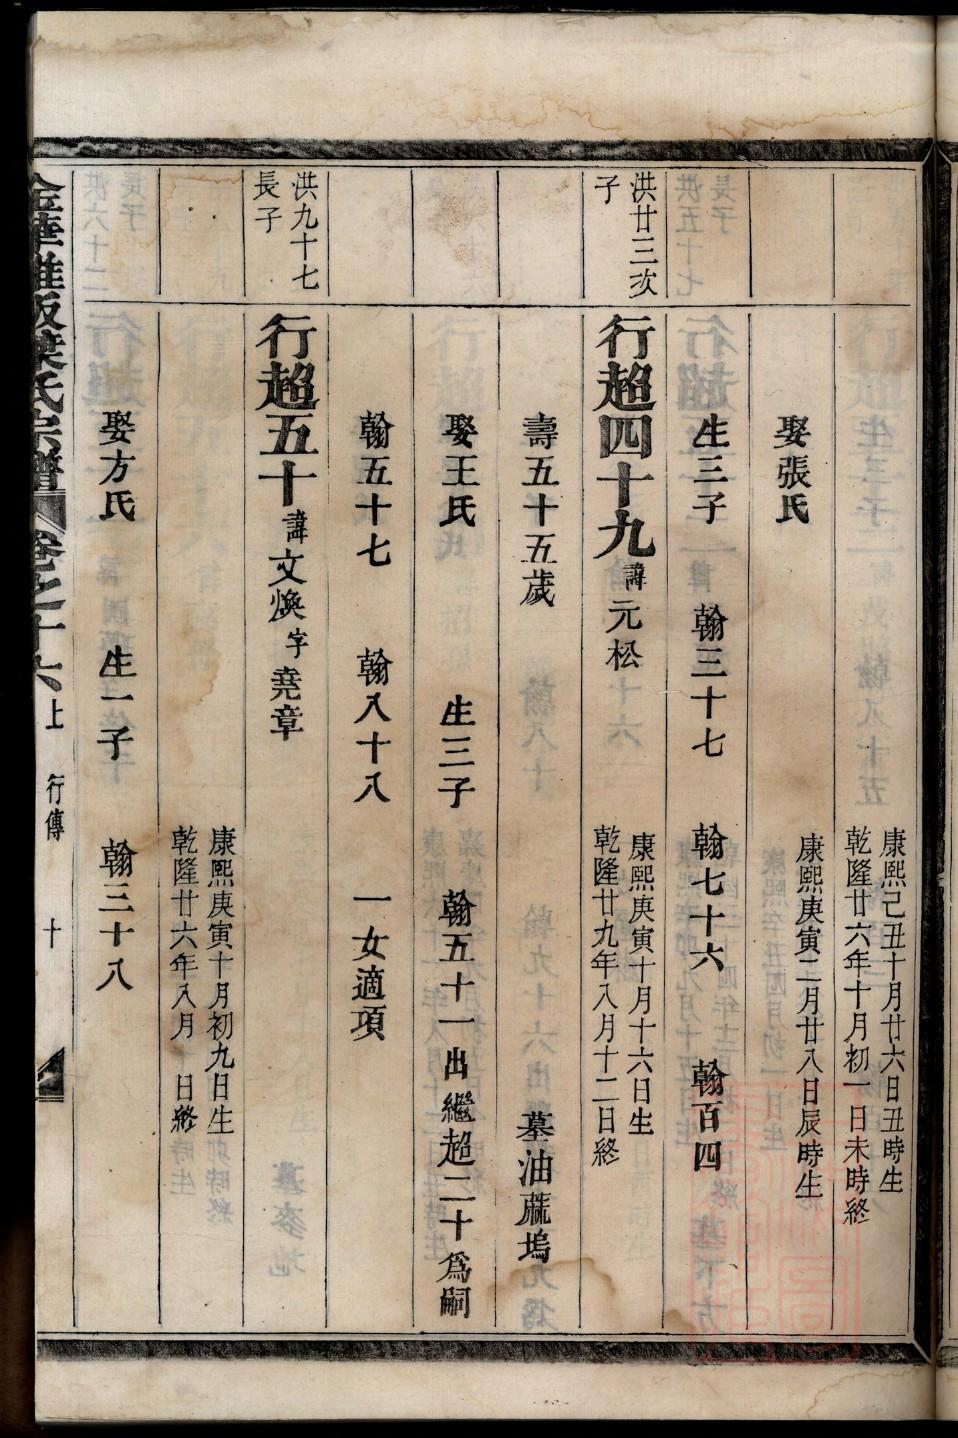 康熙己丑十月廿六日丑時生
乾隆廿六年十月初一日未時終
娶張氏
康熙庚寅二月廿八日辰時生
生三子 翰三十七 翰七十六 翰百四
洪廿三次子
行超四十九 諱元松
康熙庚寅十月十六日生
乾隆廿九年八月十二日終
壽五十五歲 墓油蔴塢
娶王氏 生三子 翰五十一出繼超二十為嗣
翰五十七 翰八十八 一女適項
洪九十七長子
行超五十 諱文煥 字堯章
康熙庚寅十月初九日生
乾隆廿六年八月 日終
娶方氏 生一子 翰三十八
氏宗譜 卷之十六上 行傳 十